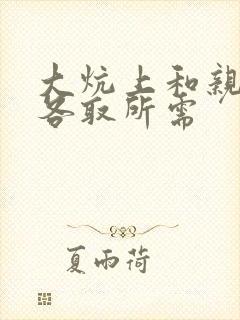 大炕上和親
各取所需
夏雨荷